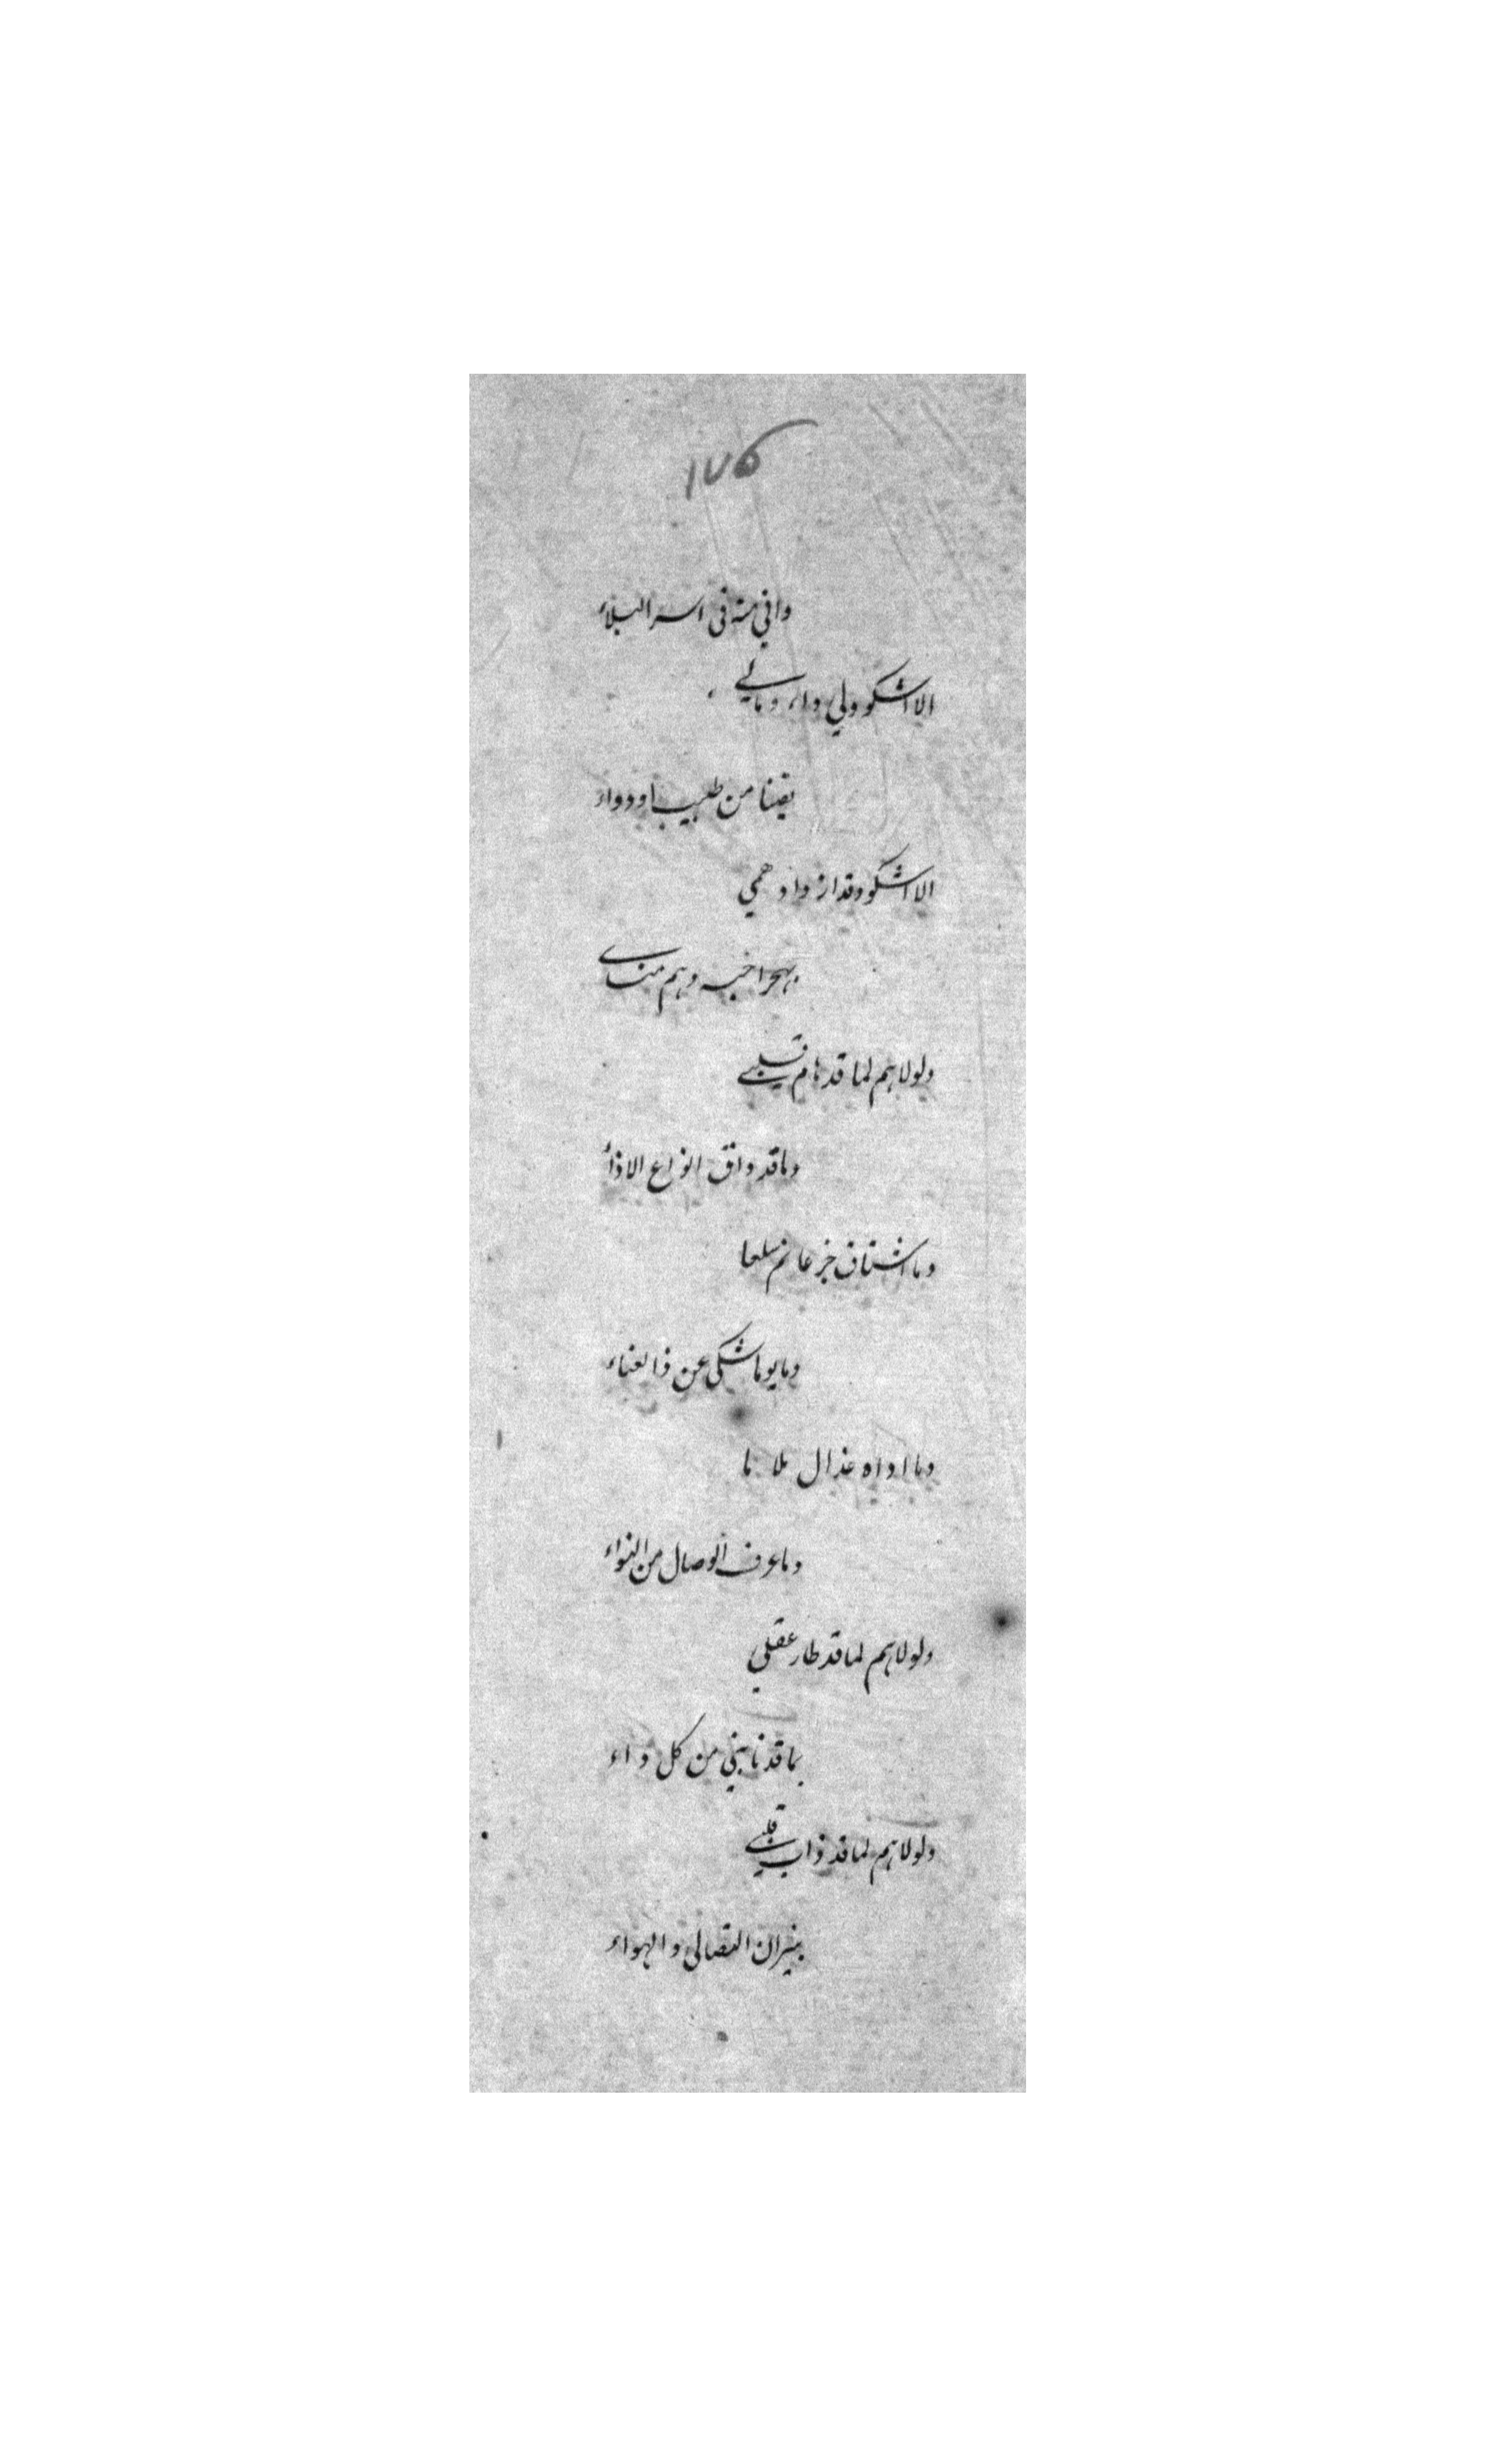 ١٧٥
واني منه في اسر البلاء
الا اشكو ولي داء وما لي
يقينا من طبيب او دواء
الا اشكو وقد ازداد همي
بهجر احبه وهم مناي
ولولاهم لما قد هام قلبي
وما قد داق انواع الاذاء
وما اشتاق سلعا
وما يوما شكى عن ذا لعناء
وما اداه عذال ملا ما
وما عرف الوصال من النواء
ولولاهم لما قد طار عقلي
بما قد نابني من كل داء
ولولاهم لما قد ذاب قلبي
بنيران التصالي والهواء